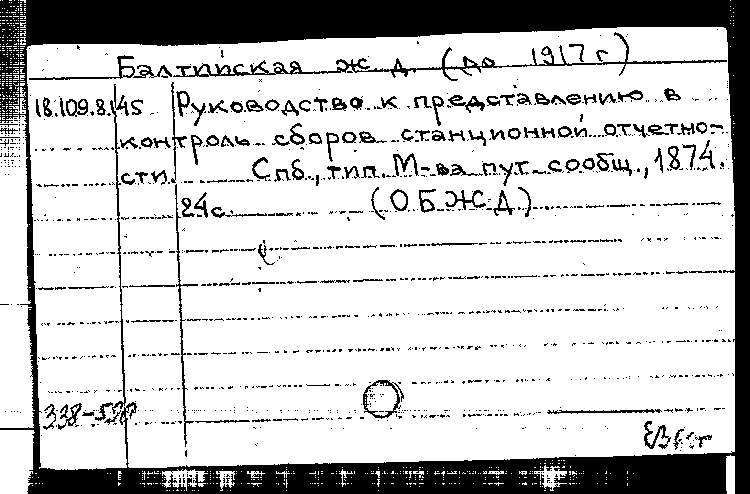 Балтийская ж. д. (до 1917 г)
18.109.8.145 Руководство к представлению в
контроль сборов станционной отчетно-
сти. Спб., тип. М-ва пут. сообщ., 1874.
24 с. (ОБЖД)